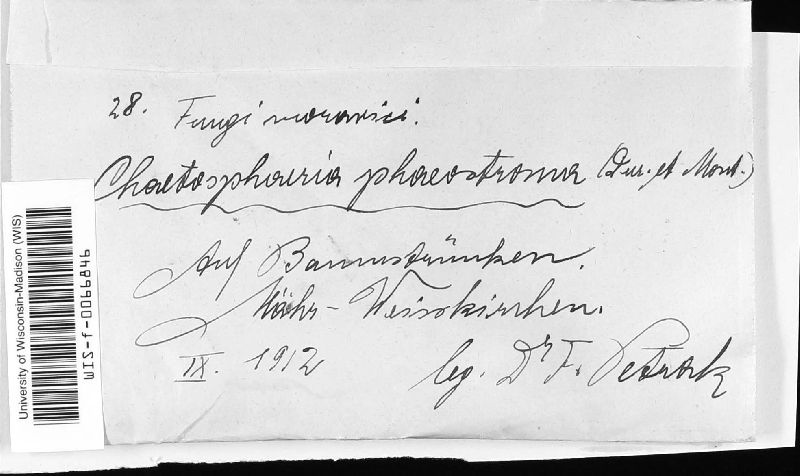 28. Fungi moravici.
Chaetosphaeria phaeostroma (Dur. et Mont.)
Auf Baumstrünken.
Mähr-Weisskirchen.
IX. 1912 leg. Dr F. Petrak
University of Wisconsin-Madison (WIS)
WIS-f-0066846